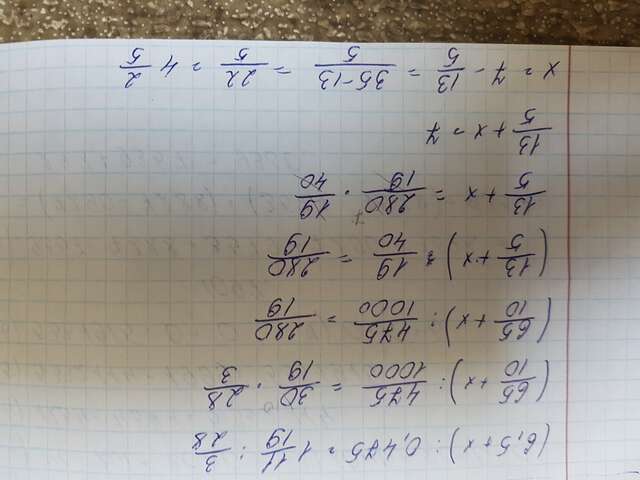 (6,5 + x) : 0,475 = 1 11/19 : 3/28
(65/10 + x) : 475/1000 = 30/19 · 28/3
(65/10 + x) : 475/1000 = 280/19
(13/5 + x) : 19/40 = 280/19
13/5 + x = 280/19 · 19/40
13/5 + x = 7
x = 7 - 13/5 = 35-13/5 = 22/5 = 4 2/5